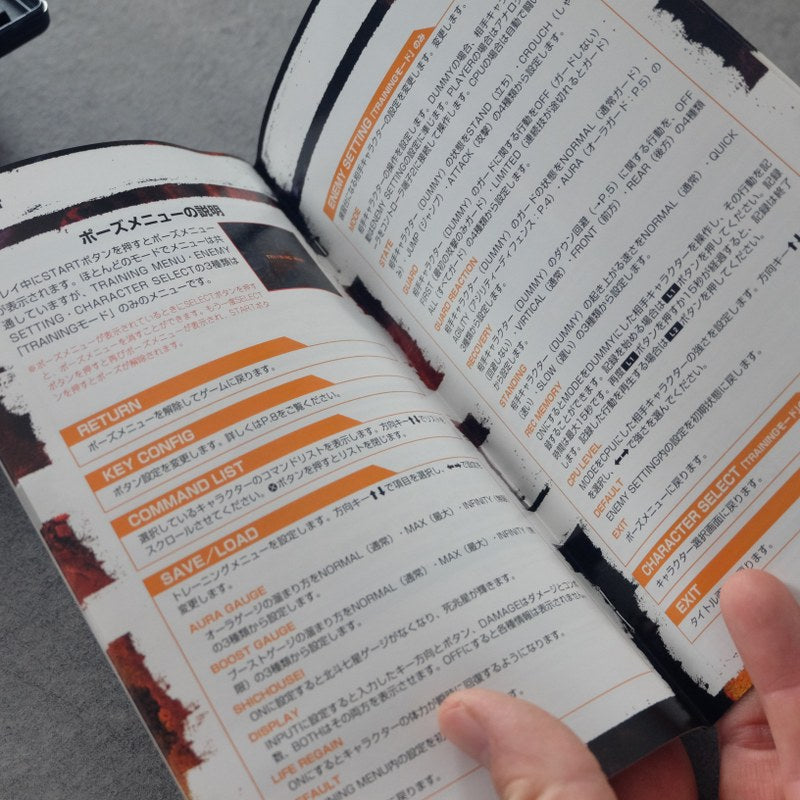 ポーズメニューの説明
レイ中にSTARTボタンを押すとポーズメニュー
が表示されます。ほとんどのモードでメニューは共
通していますが、TRAINING MENU・ENEMY
SETTING・CHARACTER SELECTの3種類は
「TRAININGモード」のみのメニューです。
※ポーズメニューが表示されているときにSELECTボタンを押す
と、ポーズメニューを消すことができます。もう一度SELECT
ボタンを押すと再びポーズメニューが表示され、STARTボタ
ンを押すとポーズが解除されます。
RETURN
ポーズメニューを解除してゲームに戻ります。
KEY CONFIG
ボタン設定を変更します。詳しくはP.8をご覧ください。
COMMAND LIST
選択しているキャラクターのコマンドリストを表示します。方向キー⬆⬇でリストを
スクロールさせてください。✕ボタンを押すとリストを閉じます。
SAVE/LOAD
トレーニングメニューを設定します。方向キー⬆⬇で項目を選択し、⬅➡で設定を
変更します。
AURA GAUGE
オーラゲージの溜まり方をNORMAL（通常）・MAX（最大）・INFINITY（無限）
の3種類から設定します。
BOOST GAUGE
ブーストゲージの溜まり方をNORMAL（通常）・MAX（最大）・INFINITY（無
限）の3種類から設定します。
SHICHOUSEI
ONに設定すると北斗七星ゲージがなくなり、死兆星が輝きます。
DISPLAY
INPUTに設定すると入力したキー方向とボタン、DAMAGEはダメージとコンボ
数、BOTHはその両方を表示させます。OFFにすると各種情報は表示されません。
LIFE REGAIN
ONにするとキャラクターの体力が瞬時に回復するようになります。
DEFAULT
NING MENU内の設定を初
ENEMY SETTING 「TRAININGモード」のみ
敵側になる相手キャラクターの設定を変更します。
MODE
相手キャラクターの操作を設定します。DUMMYの場合、相手キャ
STATE
相手キャラクター（DUMMY）の状態をSTAND（立ち）・CROUCH（しゃ
み）・JUMP（ジャンプ）・ATTACK（攻撃）の4種類から設定します。
GUARD
相手キャラクター（DUMMY）のガードに関する行動をOFF（ガードしない）
FIRST（最初の攻撃のみガード）・LIMITED（連続技が途切れるとガード）・
ALL（すべてガード）の4種類から設定します。
GUARD REACTION
相手キャラクター（DUMMY）のガードの状態をNORMAL（通常ガード）
AGILITY（アジリティーディフェンス：P.4）・AURA（オーラガード：P.5）の
3種類から設定します。
RECOVERY
相手キャラクター（DUMMY）のダウン回避（→P.5）に関する行動を、OFF
（回避しない）・VIRTICAL（通常）・FRONT（前方）・REAR（後方）の4種類
から設定します。
STANDING
相手キャラクター（DUMMY）の起き上がる速さをNORMAL（通常）・QUICK
（速い）・SLOW（遅い）の3種類から設定します。
REC MEMORY
ONにするとMODEをDUMMYにした相手キャラクターを操作し、その行動を記
録することができます。記録を始める場合はL1ボタンを押してください。記録
時間は最大15秒です。再度L1ボタンを押すか15秒が経過すると、記録は終了
します。記録した行動を再生する場合はL2ボタンを押してください。
CPU LEVEL
MODEをCPUにした相手キャラクターの強さを設定します。方向キー⬆⬇
を選択し、⬅➡で強さを選んでください。
DEFAULT
ENEMY SETTING内の設定を初期状態に戻します。
EXIT
ポーズメニューに戻ります。
CHARACTER SELECT 「TRAININGモード
キャラクター選択画面に戻ります。
EXIT
タイトル
ります。